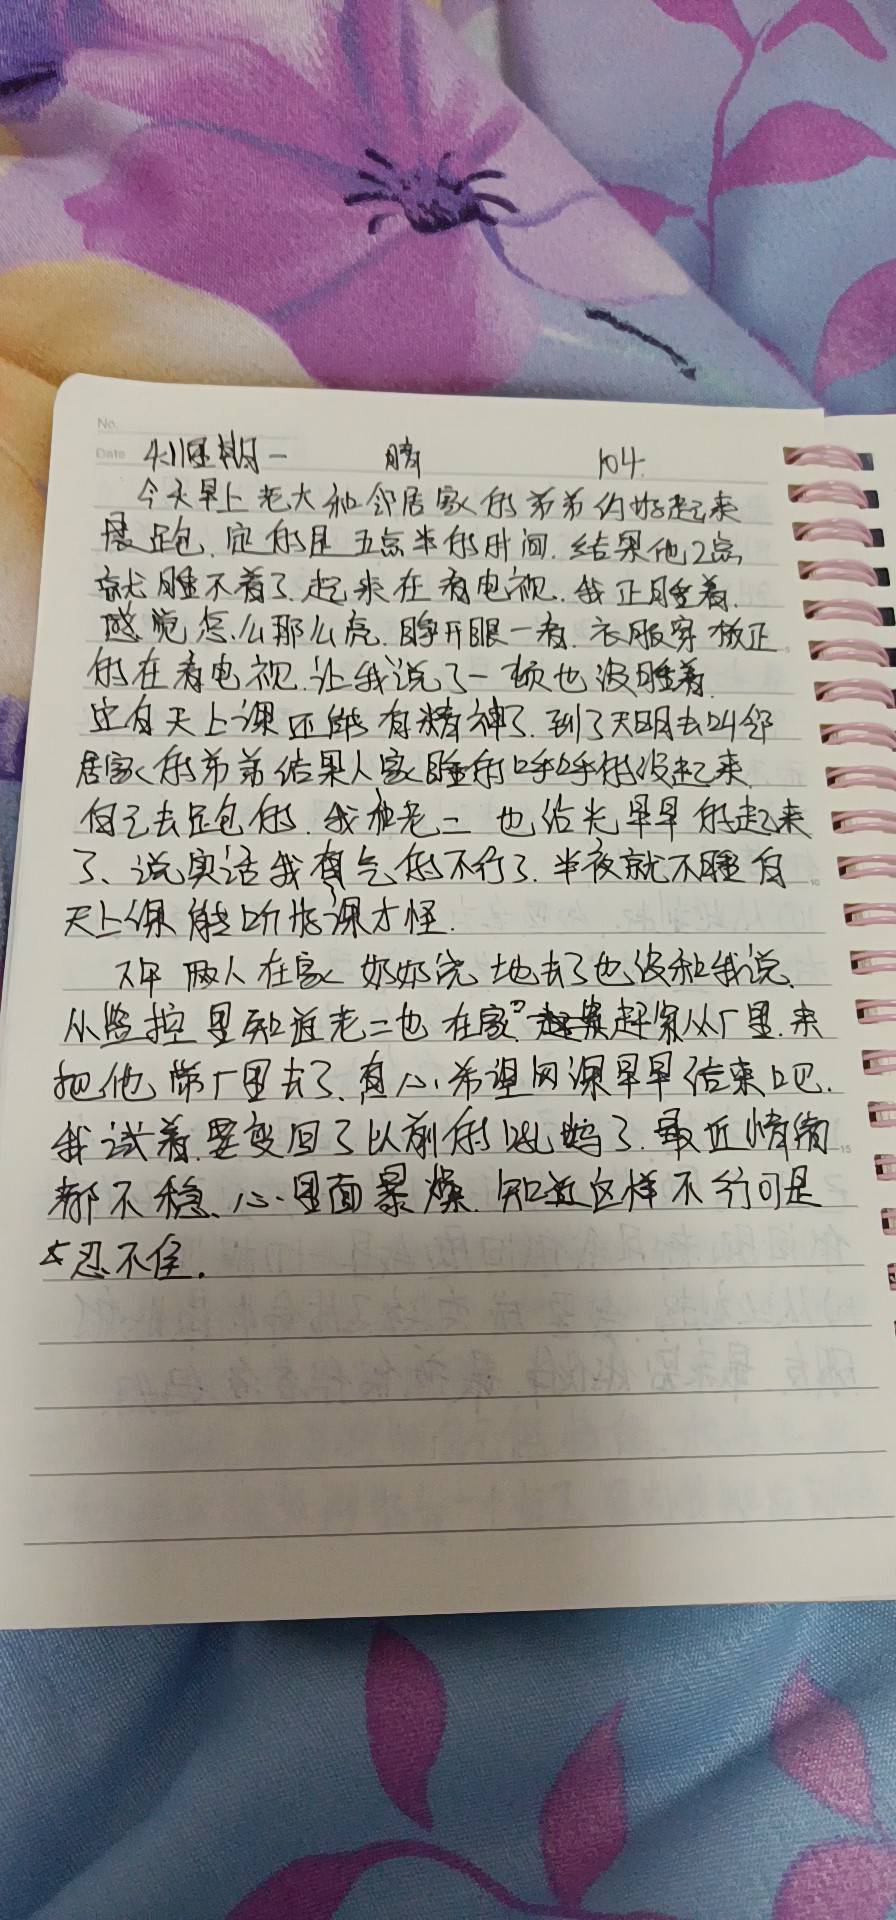 No.
Date 4.11 星期一 晴 104
今天早上老大和邻居家的弟弟约好起来
晨跑.定的是五点半的时间.结果他2点
就睡不着了.起来在看电视.我正睡着.
感觉怎么那么亮.睁开眼一看.衣服穿板正
的在看电视.让我说了一顿也没睡着.
白天上课还能有精神了.到了天明去叫邻
居家的弟弟结果人家睡的呼呼的没起来.
自己去跑的.我和老二也给老早早的起来
了、说实话我有气的不行了.半夜就不睡白
天上课能听好课才怪.
下午两人在家奶奶浇地去了也没和我说.
从监控里知道老二也在家?赶紧从厂里.来
把他带厂里去了.真心希望网课早早结束吧.
我试着要变回了以前的吼妈了.最近情绪
都不稳、心里面暴燥.知道这样不行可是
忍不住.